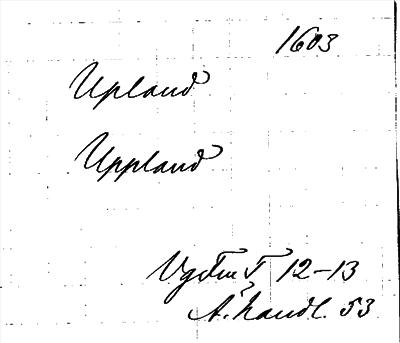 1603
Upland
Uppland
VgFmT 12-13
A: handl. 53